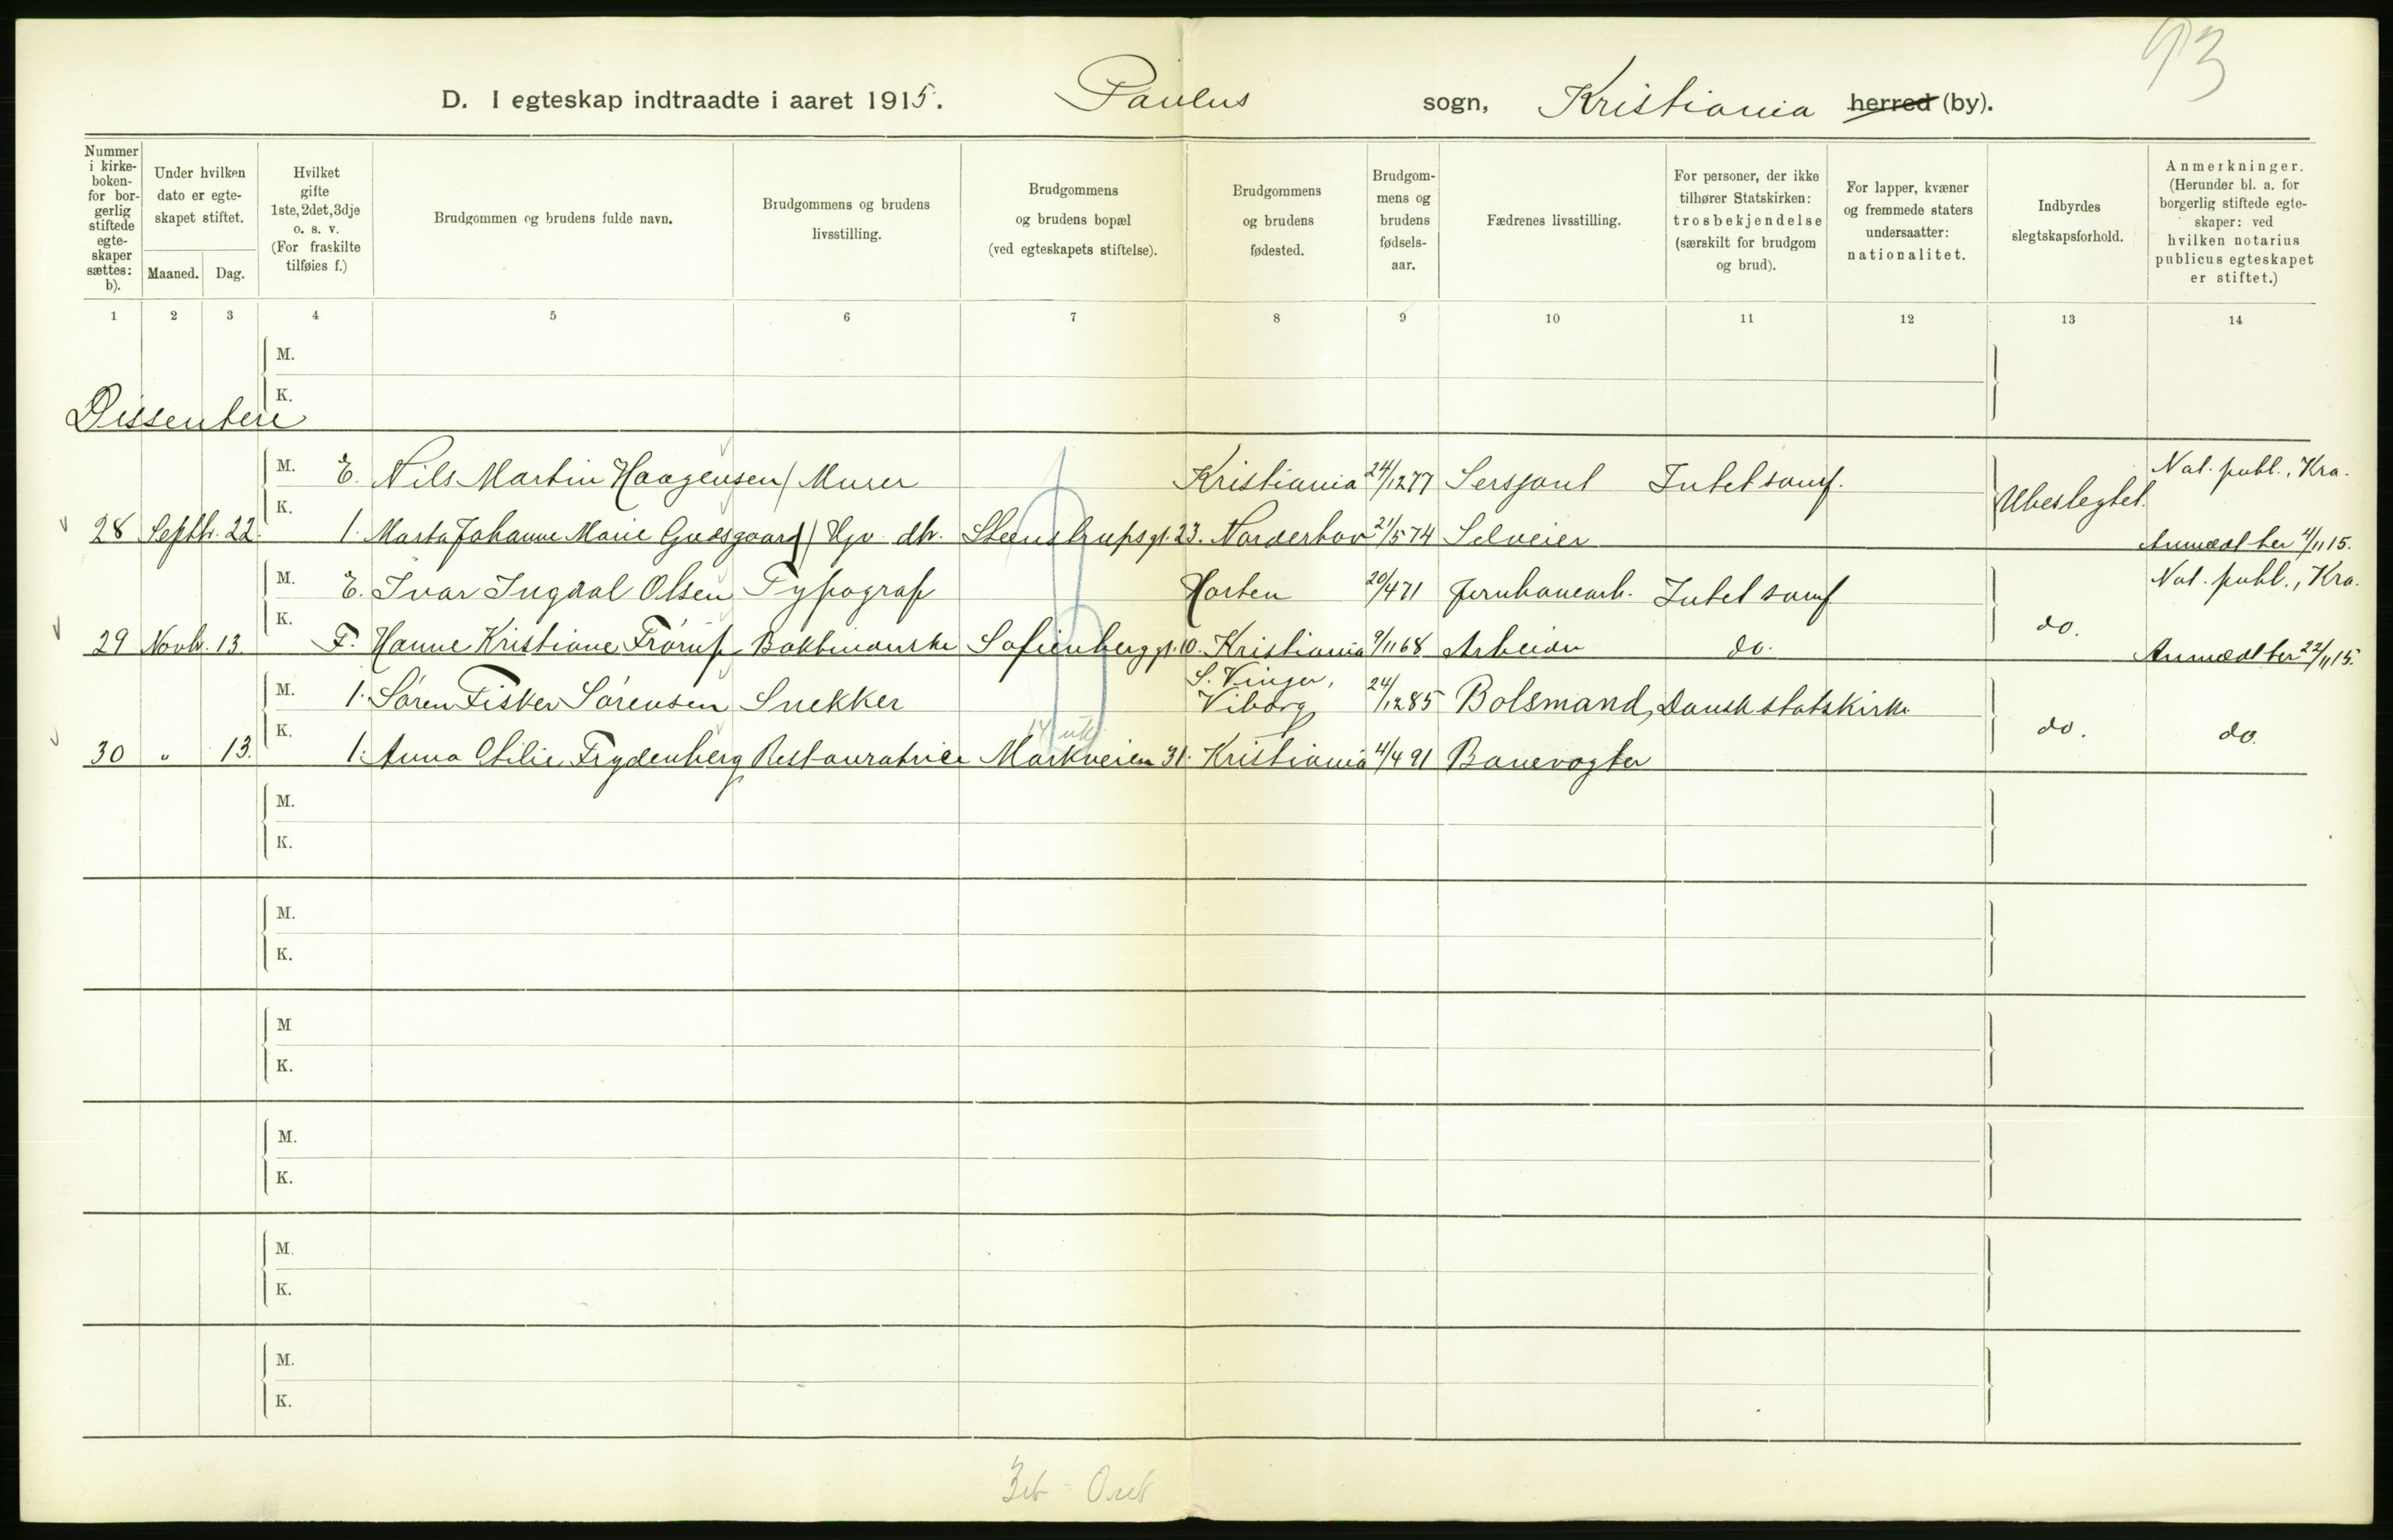 93
D. I egteskap indtraadte i aaret 1915. Paulus sogn, Kristiania herred (by).
Nummer i kirkeboken- for borgerlig stiftede egteskaper sættes: b).
Under hvilken dato er egteskapet stiftet.
Maaned. Dag.
Hvilket gifte 1ste, 2det, 3dje o. s. v. (For fraskilte tilføies f.)
Brudgommen og brudens fulde navn.
Brudgommens og brudens livsstilling.
Brudgommens og brudens bopæl (ved egteskapets stiftelse).
Brudgommens og brudens fødested.
Brudgommens og brudens fødselsaar.
Fædrenes livsstilling.
For personer, der ikke tilhører Statskirken: trosbekjendelse (særskilt for brudgom og brud).
For lapper, kvæner og fremmede staters undersaatter: nationalitet.
Indbyrdes slegtskapsforhold.
Anmerkninger. (Herunder bl. a. for borgerlig stiftede egteskaper: ved hvilken notarius publicus egteskapet er stiftet.)
1 2 3 4 5 6 7 8 9 10 11 12 13 14
M.
K.
Dissentere
M. E. Nils Martin Haagensen Murer Kristiania 24/12 77 Sersjant Intet samf. Not. publ., Kra.
K. Ubeslegtet.
28 Septbr. 22. 1. Marta Johanne Marie Gudsgaard Hjv. dtr. Steenstrupsgt. 23. Norderhov 21/5 74 Selveier Anmeldt her 4/11 15.
M. E. Ivar Ingdal Olsen Typograf Horten 20/4 71 Jernbanearb. Intet samf Not. publ., Kra.
K. do.
29 Novbr. 13. F. Hanne Kristiane Frørup Bokbinderske Sofienberggt. 10. Kristiania 9/11 68 Arbeider do. Anmeldt her 22/11 15.
S. Vinger,
M. 1. Søren Fisker Sørensen Snekker Viborg 24/12 85 Bolsmand Dansk statskirke
K. 14 uk. do. do.
30 " 13. 1. Anna Otilie Frydenberg Restauratrice Markveien 31. Kristiania 4/4 91 Banevogter
M.
K.
M.
K.
M
K.
M.
K.
M.
K.
M.
K.